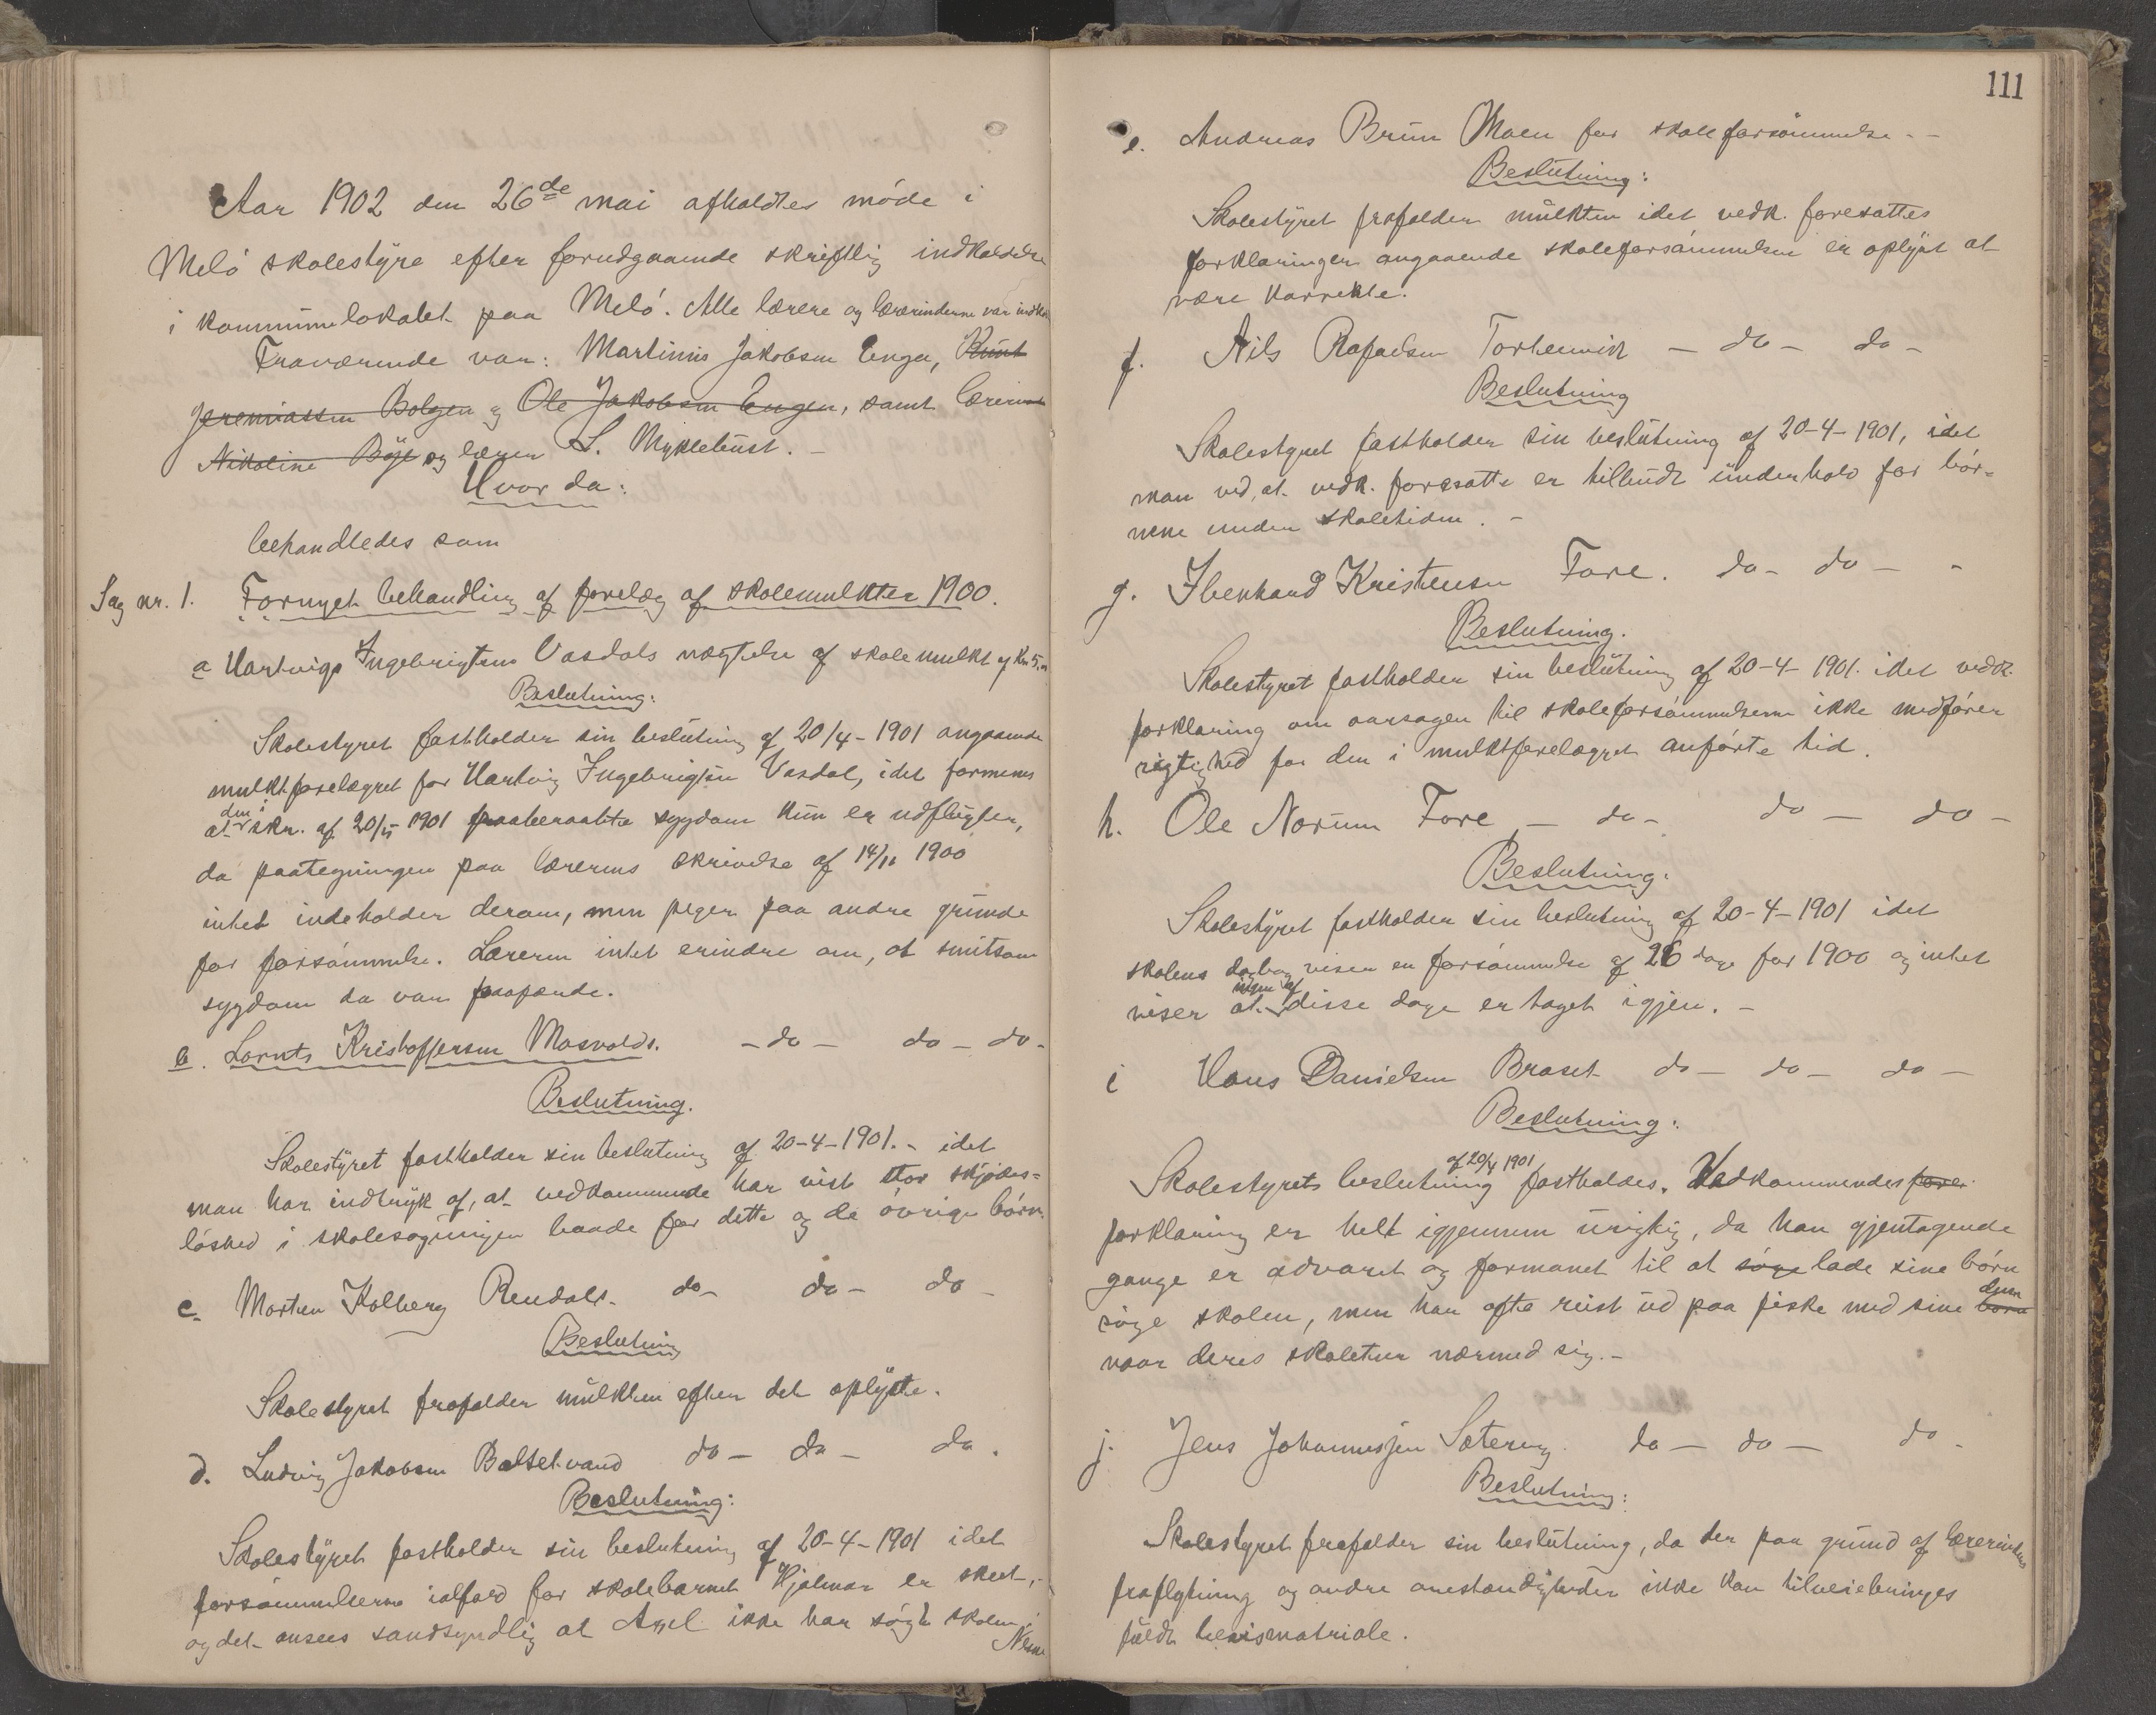 Aar 1902 den 26de mai afholdtes møde i
Melø skolestyre efter forudgaaende skriftlig indkaldelse
i kommunelokalet paa Melø. Alle lærere og lærerinderne var indk
Fraværende var: Martinus Jakobsen Enga, Kunt
Jeremiassen Bolgen og Ole Jakobsen Engen, samt lærerinde
Nikoline Böge og lærer L. Myklebust. -
Hvor da:
behandledes som
Sag nr. 1. Fornyet behandling af forelæg af skolemulkter 1900.
a Hartvigs Ingebrigtsens Vasdals nægtelse af skolemulkt af Kr. 5,00
Beslutning:
Skolestyret fastholder sin beslutning af 20/4-1901 angaaende
mulktforelægget for Hartvig Ingebrigtsen Vasdal, idet formenes
at den i skr. af 20/5 1901 paaberaabte sygdom kun er udflugter,
da paategningen paa lærerens skrivelse af 14/11 1900
intet indeholder derom, men peger paa andre grunde
for forsømmelse. Læreren intet erindre om, at smitsom
sygdom da var paafærde.
b. Lornts Kristoffersen Mosvolds. - do - do - do -
Beslutning.
Skolestyret fastholder sin beslutning af 20-4-1901. - idet
man har indtryk af, at vedkommende har vist stor skjødes=
løshed i skolesøgningen baade for dette og de øvrige børn.
c. Morten Kolberg Rendals. do - do - do -
Beslutning
Skolestyret frafalder mulkten efter det oplyste.
d. Ludvig Jakobsen Boltselvand do - do - do.
Beslutning:
Skolestyret fastholder sin beslutning af 20-4-1901 idet
forsømmelserne ialfald for skolebarnet Hjalmar er skeet,
og det ansees sandsyndlig at Axel ikke har søgt skolen i
111
e. Andreas Brun Moen for skoleforsømmelse - -
Beslutning:
Skolestyret frafalder mulkten idet vedk. foresattes
forklaringer angaaende skoleforsømmelsen er oplyst at
være korrekte.
f. Nils Rafaelsen Torhenvik - do - do -
Beslutning
Skolestyret fastholder sin beslutning af 20-4-1901, idet
man ved, at vedk. foresatte er tilbudt underhold for bør=
nene under skoletiden. -
g. Ibenhard Kristensen Fore. do - do - -
Beslutning.
Skolestyret fastholder sin beslutning af 20-4-1901. idet vedk.
forklaring om aarsagen til skoleforsømmelserne ikke medfører
rigtighed for den i mulktforelægget anførte tid.
h. Ole Norum Fore - do - do - do -
Beslutning:
Skolestyret fastholder sin beslutning af 20-4-1901 idet
skolens dagbog viser en forsømmelse af 26 dage for 1900 og intet
viser at ingen af disse dage er taget igjen. -
i Hans Danielsen Braset do - do - do -
Beslutning:
Skolestyrets beslutning af 20/4 1901 fastholdes. Vedkommendes forer
forklaring er helt igjennem urigtig, da han gjentagende
gange er advaret og formanet til at søge lade sine børn
søge skolen, men har ofte reist ud paa fiske med sine børn dem
naar deres skoletur nærmed sig. -
j. Jens Johannesjen Sætering. do - do - do -
Beslutning:
Skolestyret frafalder sin beslutning, da der paa grund af lærerindens
fraflytning og andre omstændigheder ikke kan tilveiebringes
fuldt bevismatriale.